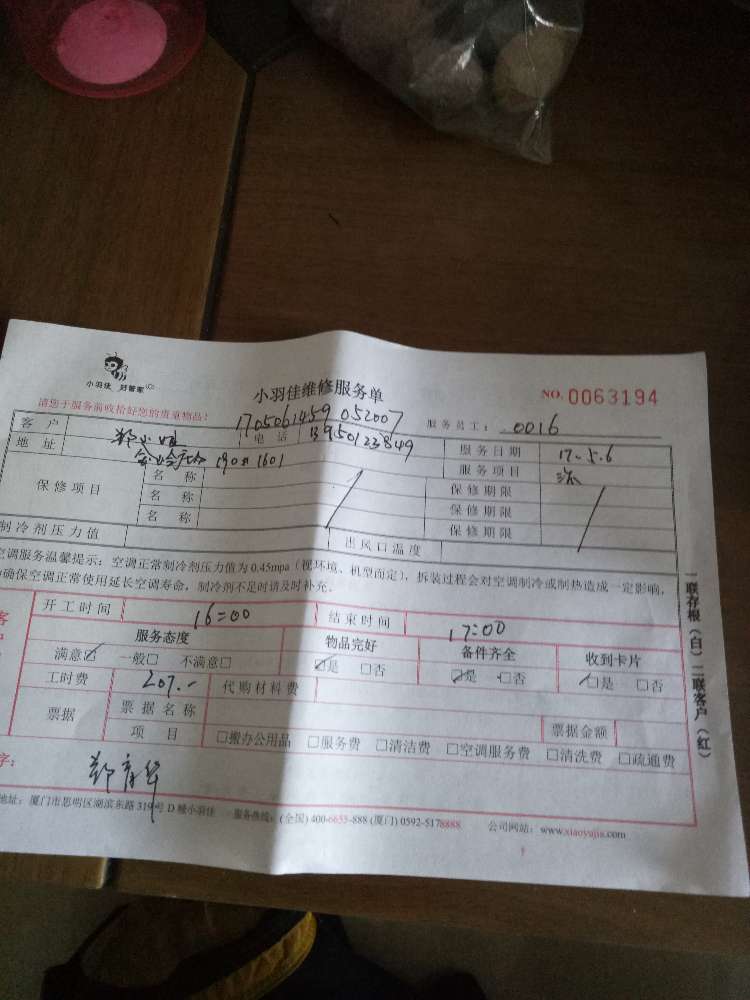 小羽佳 好管家
小羽佳维修服务单
NO. 0063194
请您于服务前收拾好您的贵重物品！
1705061459 052007
服务员工： 0016
客户 电话 13950123849 服务日期 17.5.6
地址 190#1601 服务项目
保修项目 名称 保修期限
名称 保修期限
名称 保修期限
制冷剂压力值 出风口温度
空调服务温馨提示：空调正常制冷剂压力值为 0.45mpa（视环境、机型而定），拆装过程会对空调制冷或制热造成一定影响，
确保空调正常使用延长空调寿命，制冷剂不足时请及时补充。
开工时间 16:00 结束时间 17:00
服务态度 物品完好 备件齐全 收到卡片
满意☑ 一般□ 不满意□ ☑是 □否 ☑是 □否 ☑是 □否
工时费 207.- 代购材料费
票据 票据名称 票据金额
项目 □搬办公用品 □服务费 □清洁费 □空调服务费 □清洗费 □疏通费
字：
地址：厦门市思明区湖滨东路 319 号 D 幢小羽佳 服务热线：(全国) 400-6655-888 (厦门) 0592-5178888 公司网站：www.xiaoyujia.com
一联存根（白）二联客户（红）